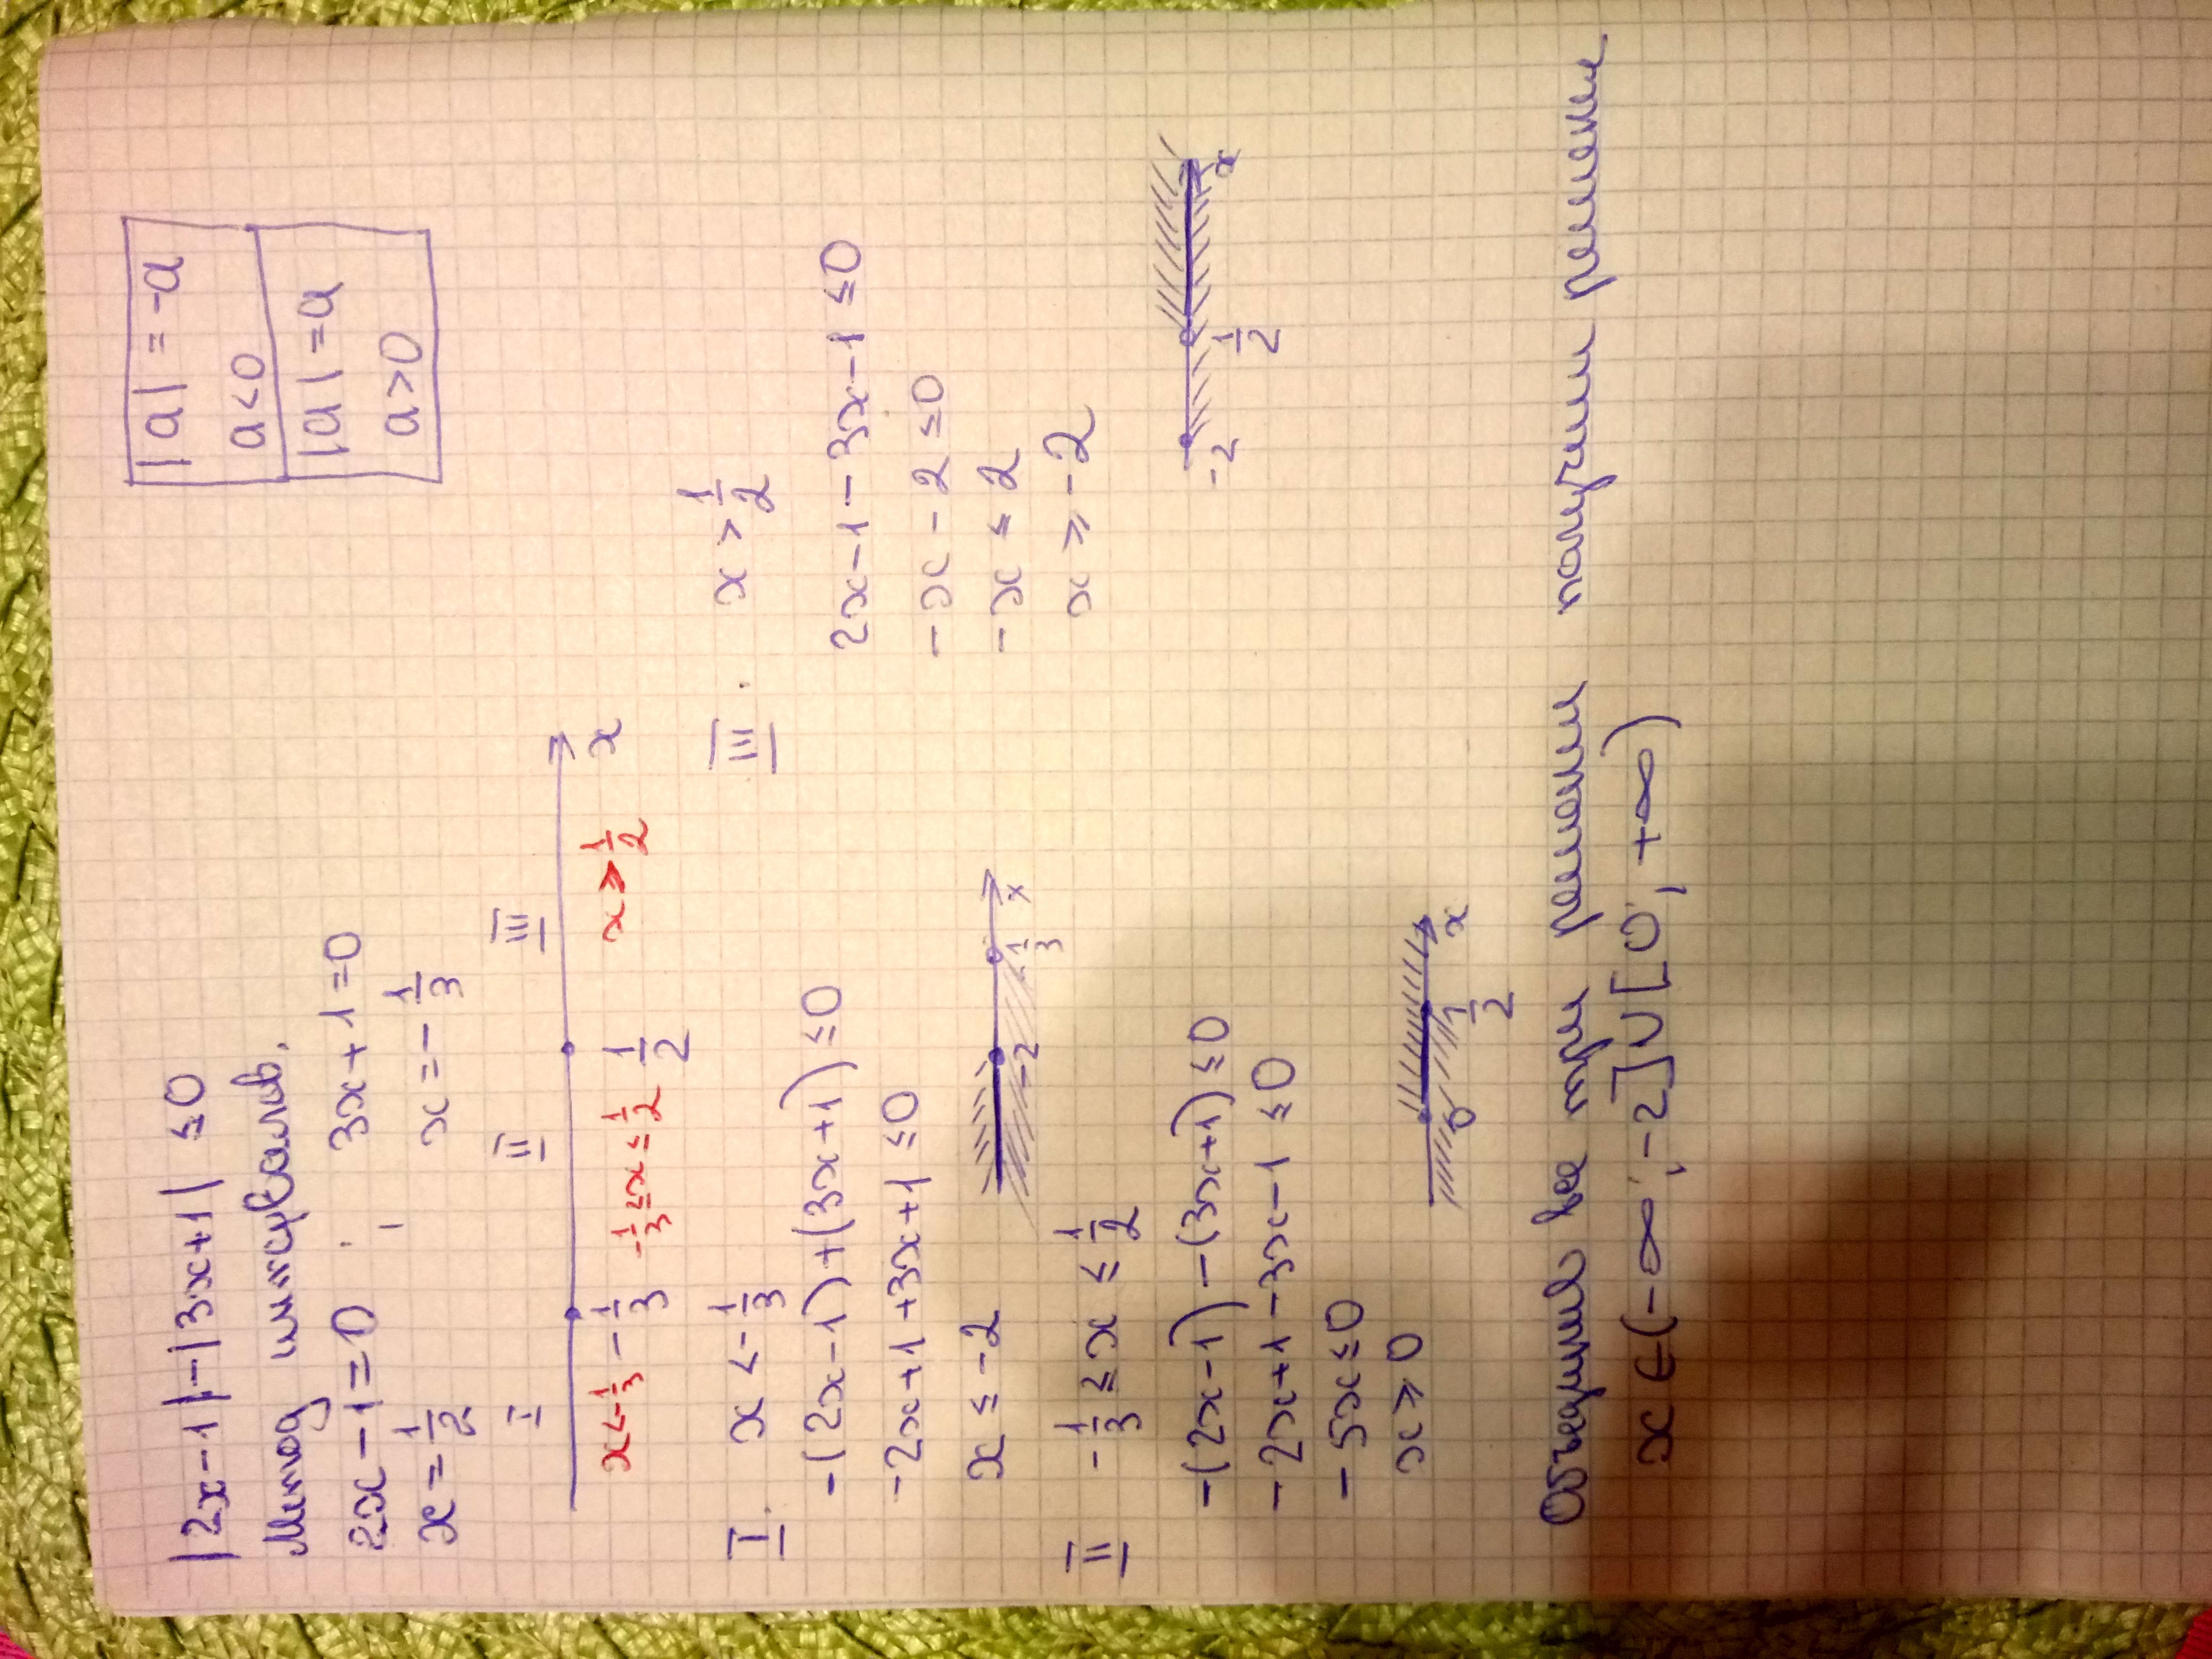 |2x-1|-|3x+1| ≤0
|a|=-a
a<0
|a|=a
a>0
Метод интервалов.
2x-1=0 ; 3x+1=0
x=1/2 x=-1/3
I II III
-1/3 1/2 x
x<-1/3 -1/3≤x≤1/2 x≥1/2
I. x<-1/3
-(2x-1)+(3x+1)≤0
-2x+1+3x+1≤0
x≤-2
-2 -1/3 x
II -1/3≤x≤1/2
-(2x-1)-(3x+1)≤0
-2x+1-3x-1≤0
-5x≤0
x≥0
0 1/2 x
III. x>1/2
2x-1-3x-1≤0
-x-2≤0
-x≤2
x≥-2
-2 1/2 x
Объединив все три решения получим решение
x∈(-∞;-2]∪[0;+∞)